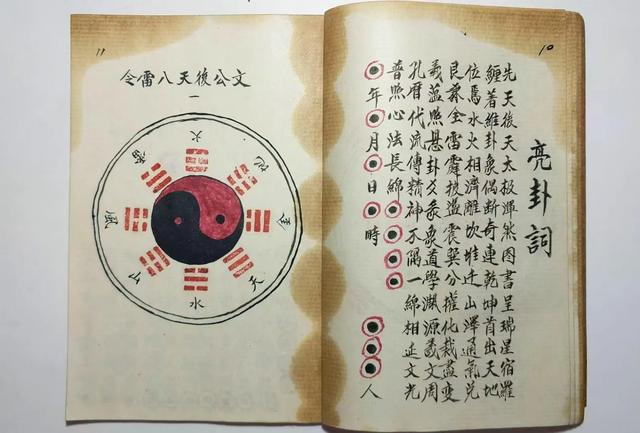 10
亮卦詞
先天後天太极渾然图書呈瑞星宿羅
纏著維卦象偶断奇連乾坤首出天地
位焉水火相濟離坎 山澤通氣兑
艮 全雷霹 盪震巽分權化裁盡變
羲蕴照悬卦爻彖象道學渊源羲文周
孔曆代流傳精神不隔一綿相延文光
普照心法長綿
年 月 日 時 人
11
文公後天八雷令
一
火
地
金
天
水
山
風
雷